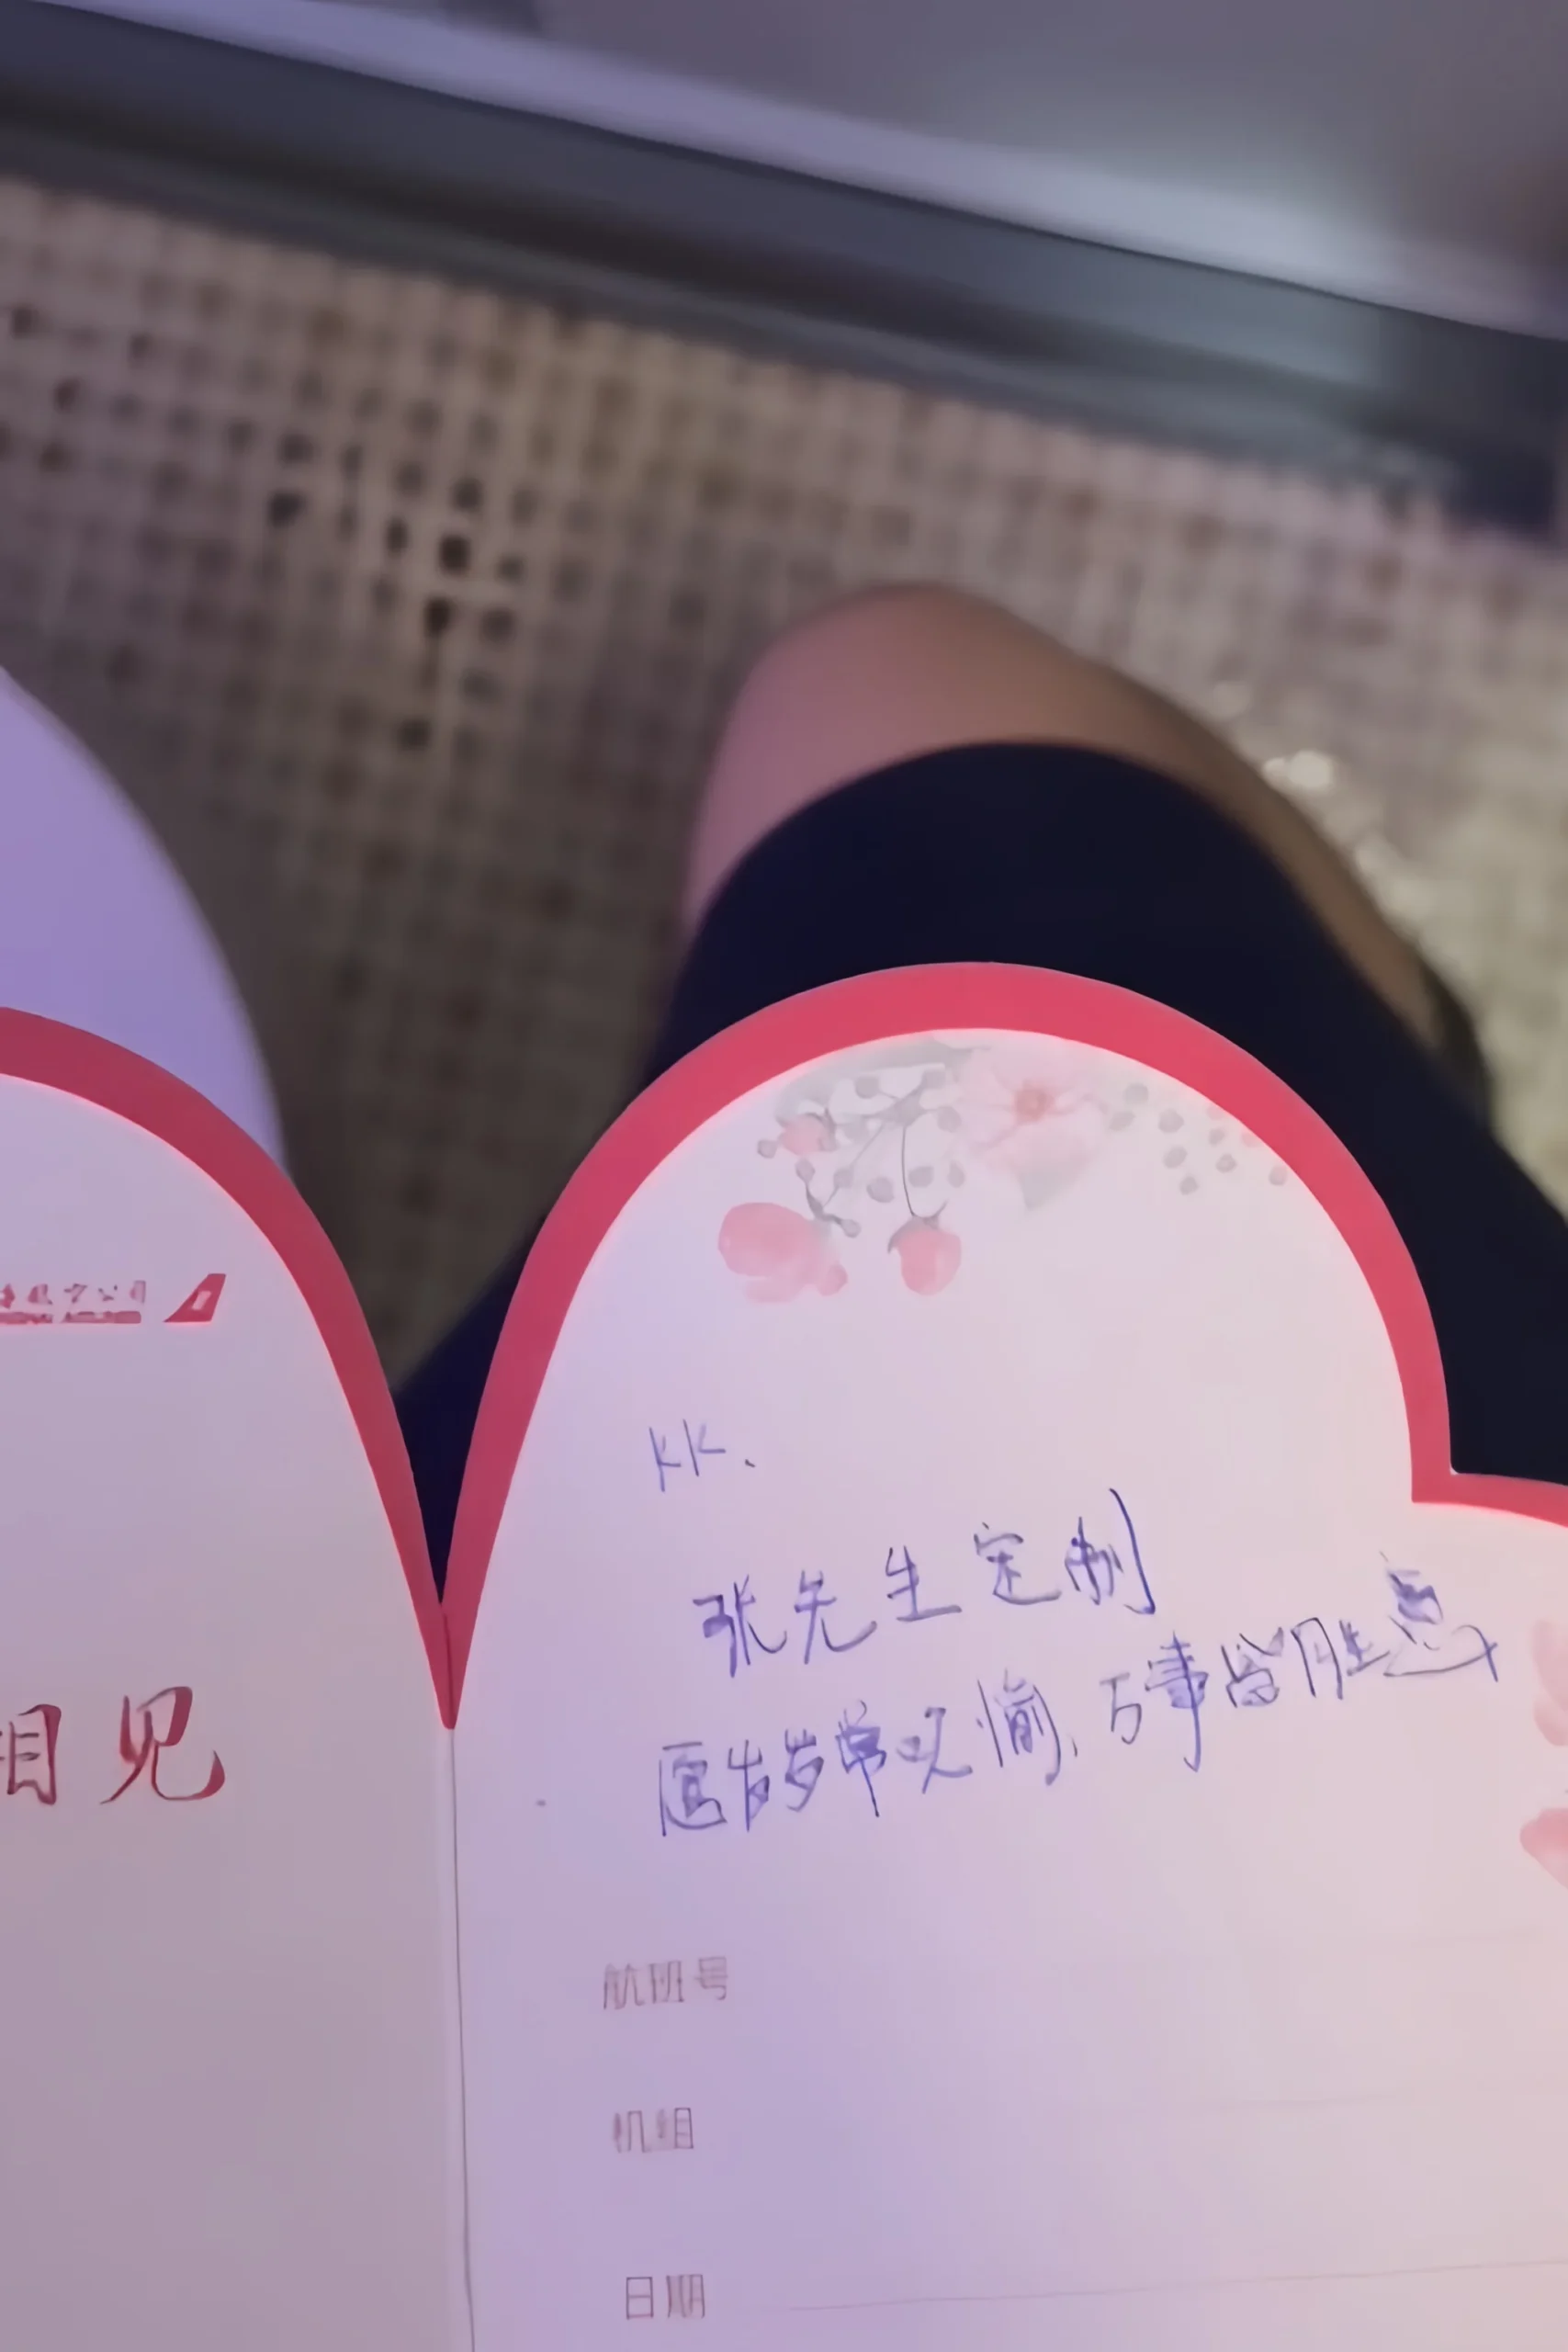 航空公司
相见
KK、
张先生定制
愿岁岁常欢愉、万事皆胜意
航班号
机组
日期